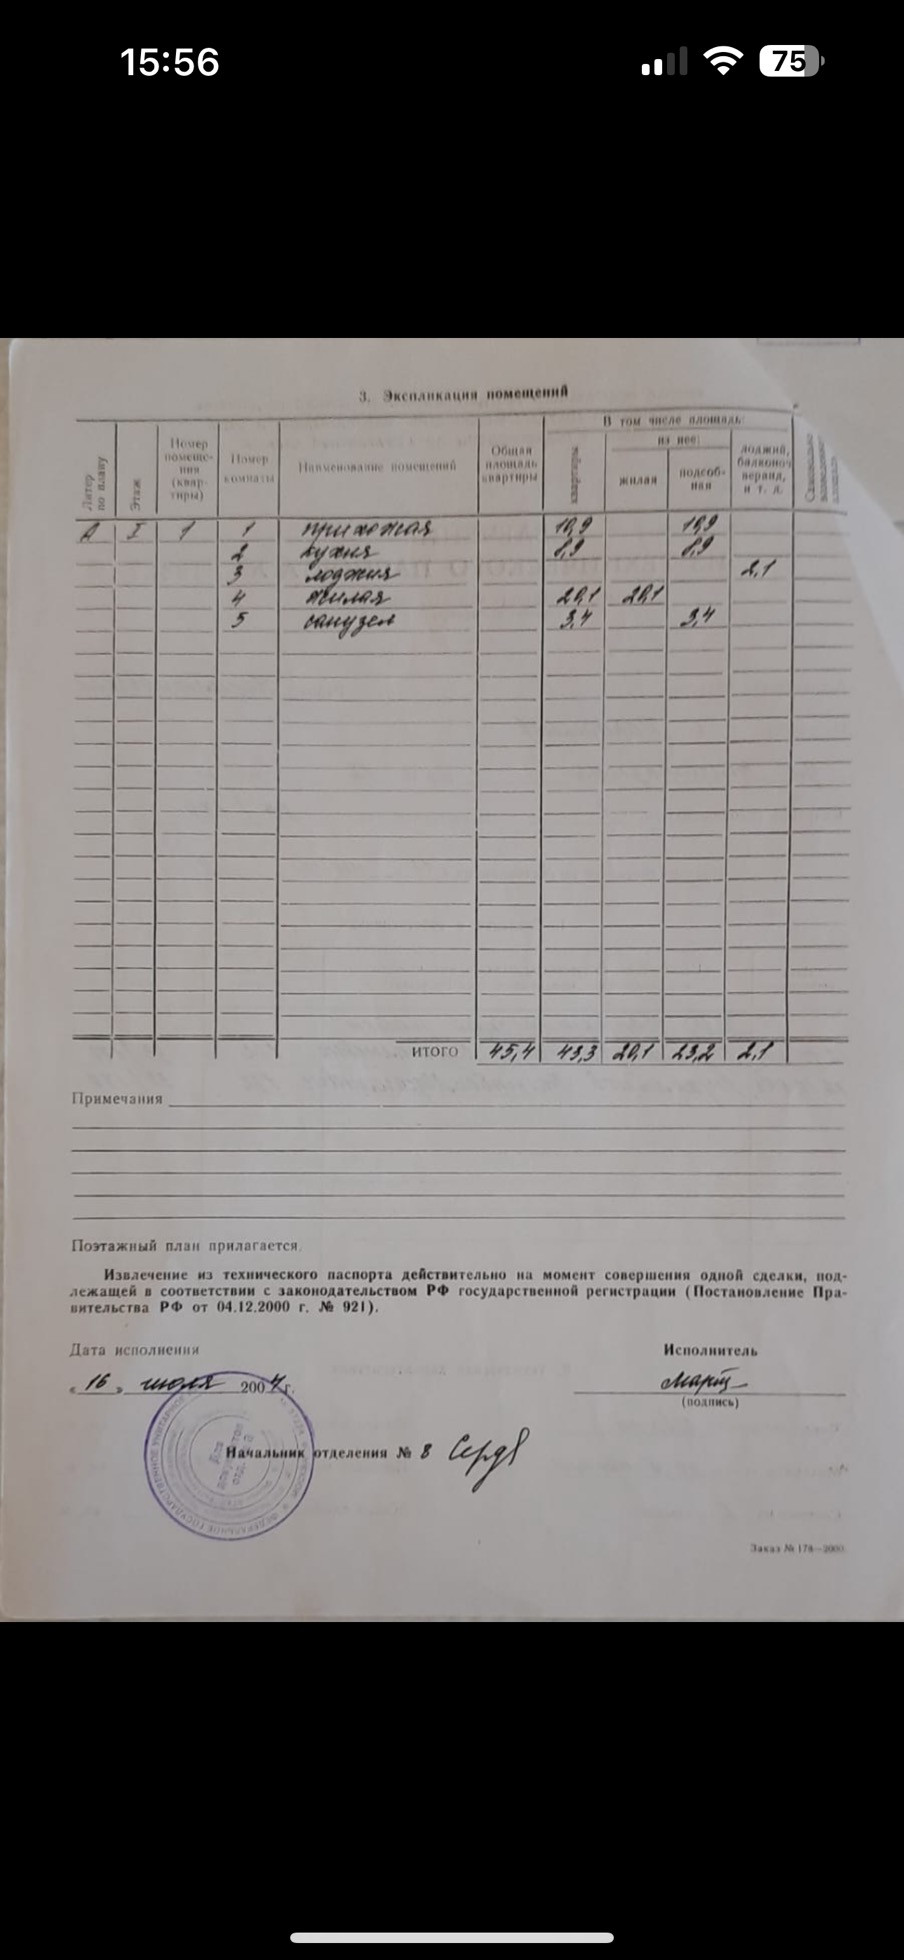 15:56
75
3. Экспликация помещений
Литер по плану
Этаж
Номер помеще-
ния
(квар-
тиры)
Номер
комнаты
Наименование помещений
Общая
площадь
квартиры
В том числе площадь:
квартиры
из нее:
жилая
подсоб-
ная
лоджий,
балконов
веранд,
и т. д.
А I 1 1 прихожая 10,9 10,9
2 кухня 8,9 8,9
3 лоджия 2,1
4 жилая 20,1 20,1
5 санузел 3,4 3,4
ИТОГО 45,4 43,3 20,1 23,2 2,1
Примечания
Поэтажный план прилагается.
Извлечение из технического паспорта действительно на момент совершения одной сделки, под-
лежащей в соответствии с законодательством РФ государственной регистрации (Постановление Пра-
вительства РФ от 04.12.2000 г. № 921).
Дата исполнения
Исполнитель
« 16 » июля 2004 г.
(подпись)
Начальник отделения № 8
Заказ № 178—2000.